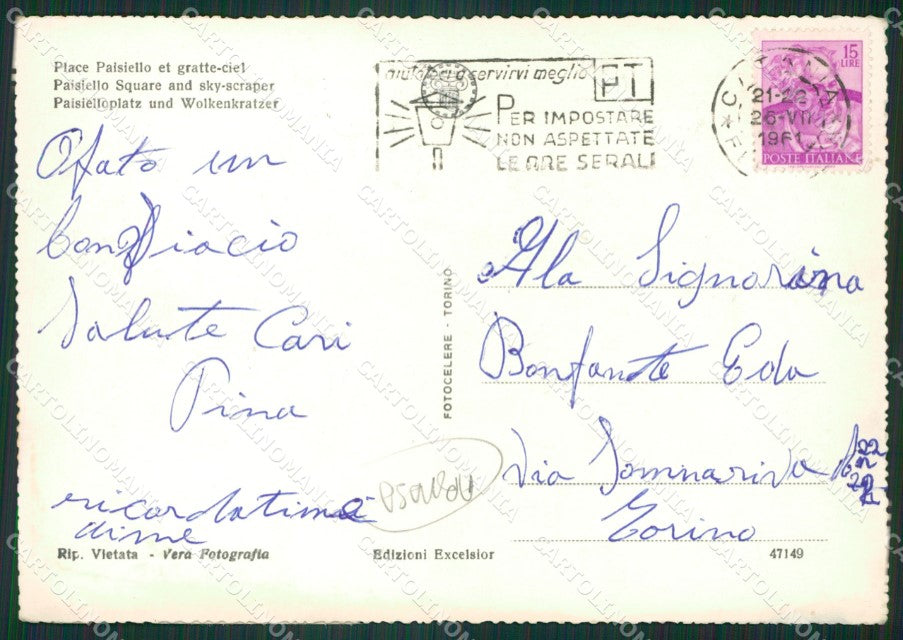 Place Paisiello et gratte-ciel
Paisiello Square and sky-scraper
Paisielloplatz und Wolkenkratzer
aiutateci a servirvi meglio
PT
PER IMPOSTARE
NON ASPETTATE
LE ORE SERALI
21-22
26-VII
1961
15
LIRE
POSTE ITALIANE
Ala Signorina
Bonfante Eda
Via Sommariva N 22
Torino
Salute Cari
Pina
ricordatima
dime
FOTOCELERE - TORINO
Rip. Vietata - Vera Fotografia
Edizioni Excelsior
47149
CARTOLINOMANIA